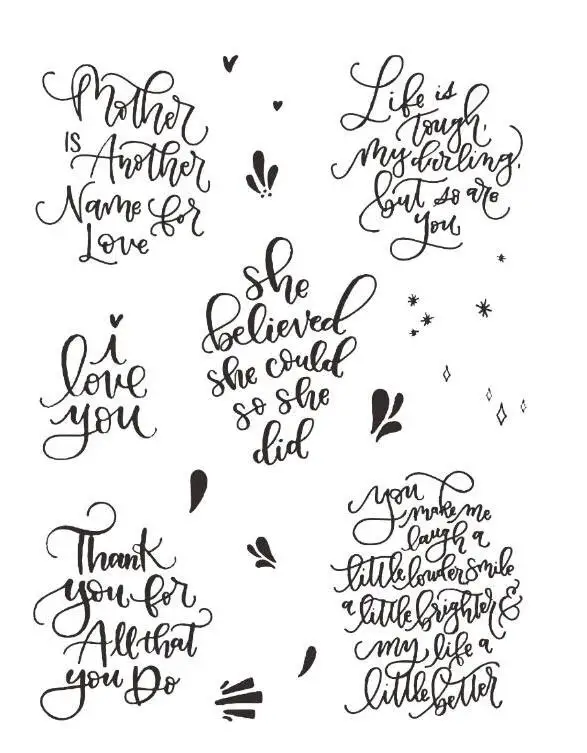 Mother
IS Another
Name for
Love
Life is
tough,
my darling,
but so are
you
she
believed
she could
so she
did
i
love
you
Thank
you for
All that
you Do
you
make me
laugh a
little louder smile
a little brighter &
my life a
little better